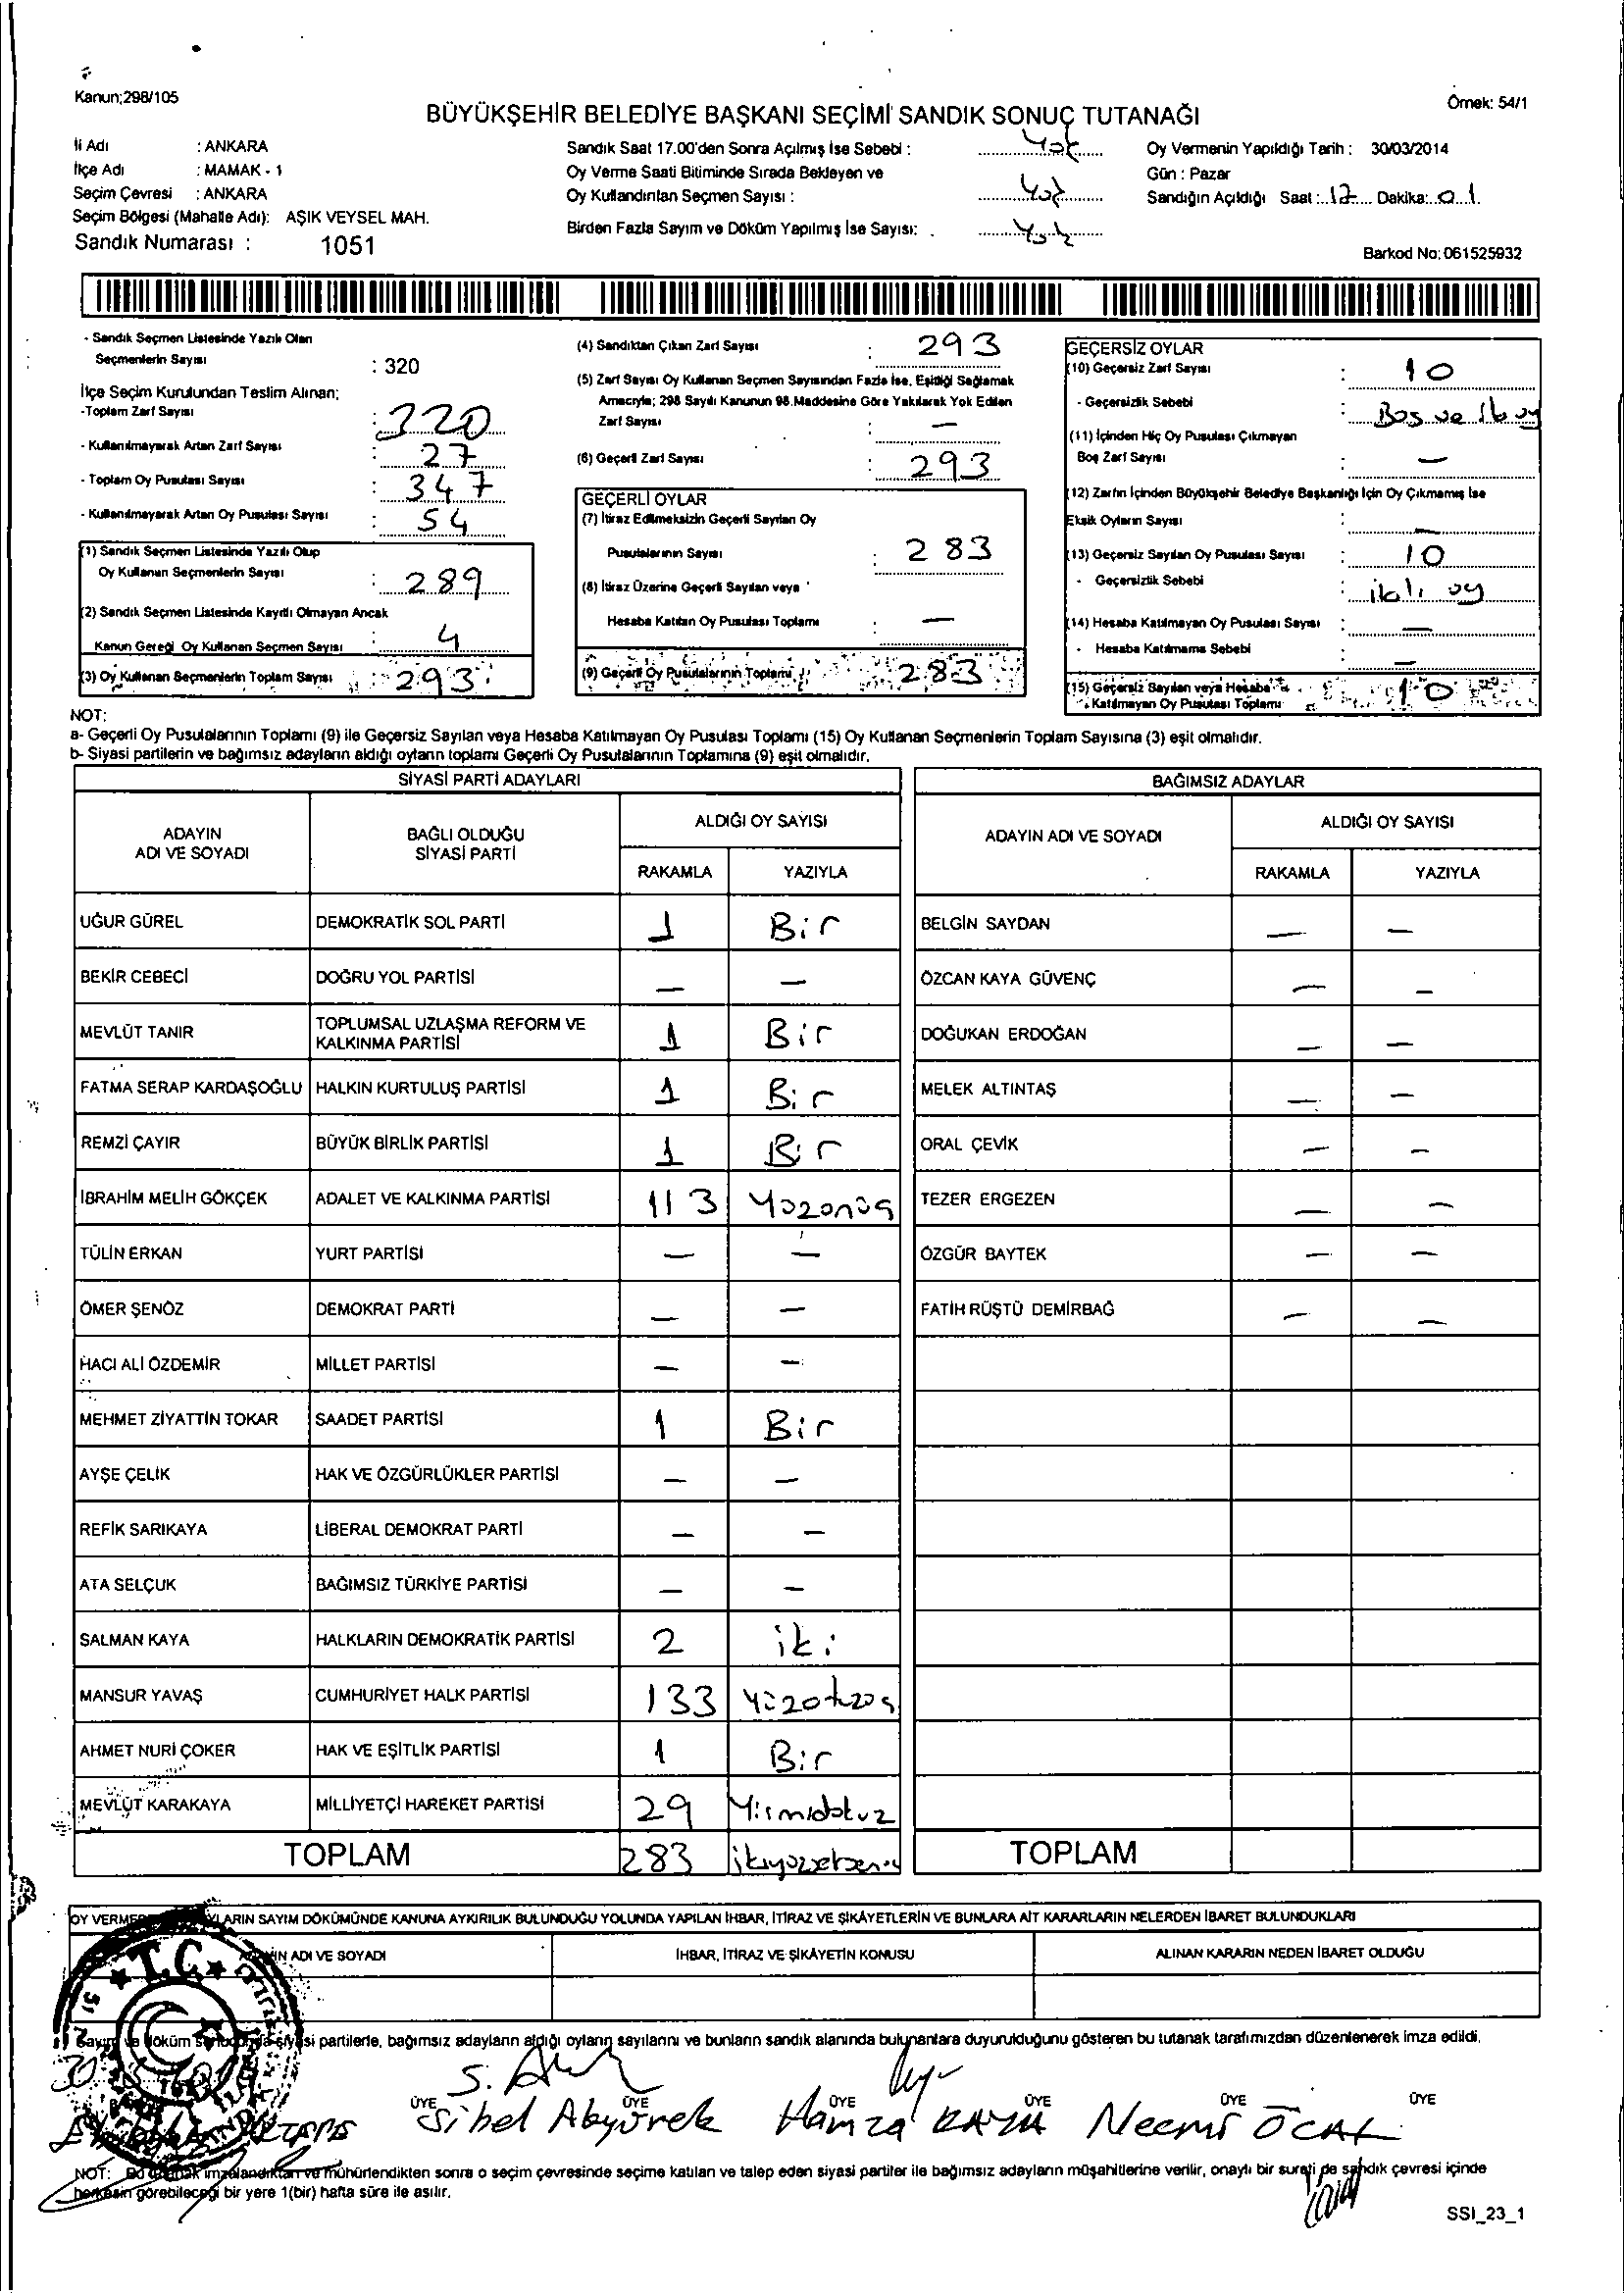 Kanun;298/105
Örnek: 54/1
BÜYÜKŞEHİR BELEDİYE BAŞKANI SEÇİMİ SANDIK SONUÇ TUTANAĞI
İli Adı : ANKARA
İlçe Adı : MAMAK - 1
Seçim Çevresi : ANKARA
Seçim Bölgesi (Mahalle Adı): AŞIK VEYSEL MAH.
Sandık Numarası : 1051
Sandık Saat 17.00'den Sonra Açılmış İse Sebebi : Yok
Oy Verme Saati Bitiminde Sırada Bekleyen ve
Oy Kullandırılan Seçmen Sayısı : Yok
Birden Fazla Sayım ve Döküm Yapılmış İse Sayısı: Yok
Oy Vermenin Yapıldığı Tarih : 30/03/2014
Gün : Pazar
Sandığın Açıldığı Saat : 17 Dakika: 01
Barkod No: 061525932
- Sandık Seçmen Listesinde Yazılı Olan
Seçmenlerin Sayısı : 320
İlçe Seçim Kurulundan Teslim Alınan;
-Toplam Zarf Sayısı : 320
- Kullanılmayarak Artan Zarf Sayısı : 27
- Toplam Oy Pusulası Sayısı : 347
- Kullanılmayarak Artan Oy Pusulası Sayısı : 54
(1) Sandık Seçmen Listesinde Yazılı Olup
Oy Kullanan Seçmenlerin Sayısı : 289
(2) Sandık Seçmen Listesinde Kayıtlı Olmayan Ancak
Kanun Gereği Oy Kullanan Seçmen Sayısı : 4
(3) Oy Kullanan Seçmenlerin Toplam Sayısı : 293
(4) Sandıktan Çıkan Zarf Sayısı : 293
(5) Zarf Sayısı Oy Kullanan Seçmen Sayısından Fazla İse, Eşitliği Sağlamak
Amacıyla; 298 Sayılı Kanunun 98.Maddesine Göre Yakılarak Yok Edilen
Zarf Sayısı : —
(6) Geçerli Zarf Sayısı : 293
GEÇERLİ OYLAR
(7) İtiraz Edilmeksizin Geçerli Sayılan Oy
Pusulalarının Sayısı : 283
(8) İtiraz Üzerine Geçerli Sayılan veya
Hesaba Katılan Oy Pusulası Toplamı : —
(9) Geçerli Oy Pusulalarının Toplamı : 283
GEÇERSİZ OYLAR
(10) Geçersiz Zarf Sayısı : 10
- Geçersizlik Sebebi : Boş ve
(11) İçinden Hiç Oy Pusulası Çıkmayan
Boş Zarf Sayısı : —
(12) Zarfın İçinden Büyükşehir Belediye Başkanlığı İçin Oy Çıkmamış İse
Eksik Oyların Sayısı : —
(13) Geçersiz Sayılan Oy Pusulası Sayısı : 10
- Geçersizlik Sebebi : oy
(14) Hesaba Katılmayan Oy Pusulası Sayısı : —
- Hesaba Katılmama Sebebi : —
(15) Geçersiz Sayılan veya Hesaba
Katılmayan Oy Pusulası Toplamı : 10
NOT:
a- Geçerli Oy Pusulalarının Toplamı (9) ile Geçersiz Sayılan veya Hesaba Katılmayan Oy Pusulası Toplamı (15) Oy Kullanan Seçmenlerin Toplam Sayısına (3) eşit olmalıdır.
b- Siyasi partilerin ve bağımsız adayların aldığı oyların toplamı Geçerli Oy Pusulalarının Toplamına (9) eşit olmalıdır.
SİYASİ PARTİ ADAYLARI
ADAYIN ADI VE SOYADI BAĞLI OLDUĞU SİYASİ PARTİ ALDIĞI OY SAYISI
RAKAMLA YAZIYLA
UĞUR GÜREL DEMOKRATİK SOL PARTİ 1 Bir
BEKİR CEBECİ DOĞRU YOL PARTİSİ — —
MEVLÜT TANIR TOPLUMSAL UZLAŞMA REFORM VE KALKINMA PARTİSİ 1 Bir
FATMA SERAP KARDAŞOĞLU HALKIN KURTULUŞ PARTİSİ 1 Bir
REMZİ ÇAYIR BÜYÜK BİRLİK PARTİSİ 1 Bir
İBRAHİM MELİH GÖKÇEK ADALET VE KALKINMA PARTİSİ 113 Yüzonüç
TÜLİN ERKAN YURT PARTİSİ — —
ÖMER ŞENÖZ DEMOKRAT PARTİ — —
HACI ALİ ÖZDEMİR MİLLET PARTİSİ — —
MEHMET ZİYATTİN TOKAR SAADET PARTİSİ 1 Bir
AYŞE ÇELİK HAK VE ÖZGÜRLÜKLER PARTİSİ — —
REFİK SARIKAYA LİBERAL DEMOKRAT PARTİ — —
ATA SELÇUK BAĞIMSIZ TÜRKİYE PARTİSİ — —
SALMAN KAYA HALKLARIN DEMOKRATİK PARTİSİ 2 iki
MANSUR YAVAŞ CUMHURİYET HALK PARTİSİ 133
AHMET NURİ ÇOKER HAK VE EŞİTLİK PARTİSİ 1 Bir
MEVLÜT KARAKAYA MİLLİYETÇİ HAREKET PARTİSİ 29 Yirmidokuz
TOPLAM 283
BAĞIMSIZ ADAYLAR
ADAYIN ADI VE SOYADI ALDIĞI OY SAYISI
RAKAMLA YAZIYLA
BELGİN SAYDAN — —
ÖZCAN KAYA GÜVENÇ — —
DOĞUKAN ERDOĞAN — —
MELEK ALTINTAŞ — —
ORAL ÇEVİK — —
TEZER ERGEZEN — —
ÖZGÜR BAYTEK — —
FATİH RÜŞTÜ DEMİRBAĞ — —
TOPLAM
OY SAYIM DÖKÜMÜNDE KANUNA AYKIRILIK BULUNDUĞU YOLUNDA YAPILAN İHBAR, İTİRAZ VE ŞİKÂYETLERİN VE BUNLARA AİT KARARLARIN NELERDEN İBARET BULUNDUKLARI
ADI VE SOYADI İHBAR, İTİRAZ VE ŞİKÂYETİN KONUSU ALINAN KARARIN NEDEN İBARET OLDUĞU
T.C.
Sayım ve döküm siyasi partilerle, bağımsız adayların aldığı oyların sayılarını ve bunların sandık alanında bulunanlara duyurulduğunu gösteren bu tutanak tarafımızdan düzenlenerek imza edildi.
30
ÜYE ÜYE ÜYE ÜYE ÜYE ÜYE
Sibel Akyürek Hamza KAYA Necmi ÖCAL
NOT: Bu tutanak imzalandıktan ve mühürlendikten sonra o seçim çevresinde seçime katılan ve talep eden siyasi partiler ile bağımsız adayların müşahitlerine verilir, onaylı bir sureti de sandık çevresi içinde
herkesin görebileceği bir yere 1(bir) hafta süre ile asılır.
SSI_23_1